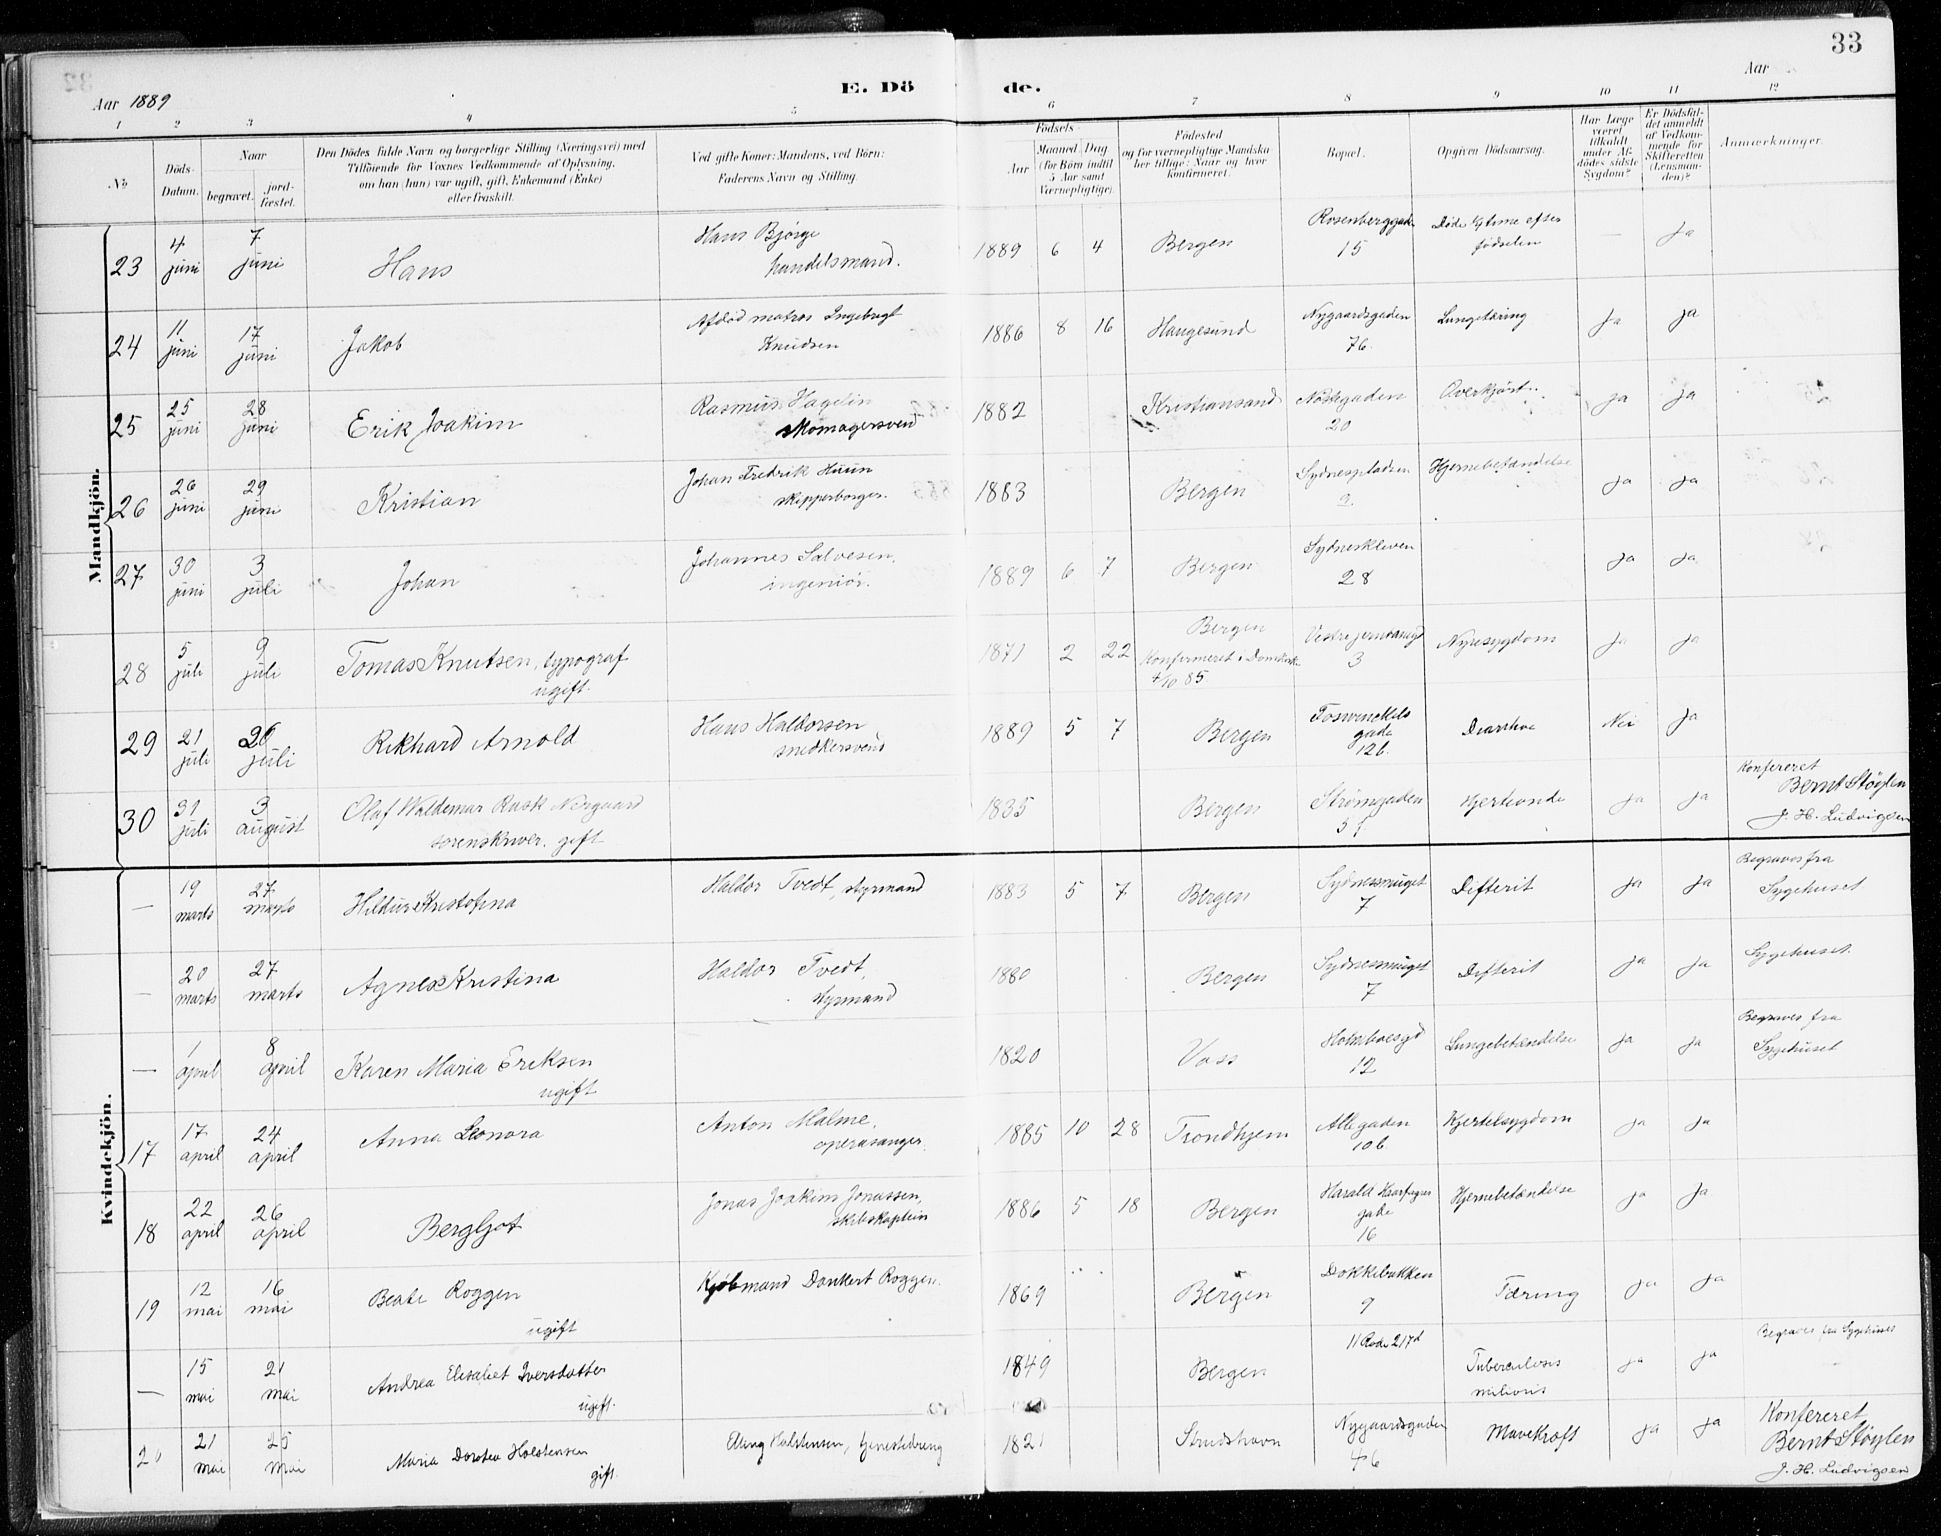 33
Aar 1889
E. Dö
de.
Aar
1 2 3 4 5 6 7 8 9 10 11 12
No
Döds-
Datum.
Naar
begravet.
jord-
fæstet.
Den Dödes fulde Navn og borgerlige Stilling (Næringsvei) med
Tilföiende for Voxnes Vedkommende af Oplysning,
om han (hun) var ugift, gift, Enkemand (Enke)
eller fraskilt.
Ved gifte Koner: Mandens, ved Börn:
Faderens Navn og Stilling.
Födsels-
Aar
Maaned. Dag
(for Börn indtil
5 Aar samt
Værnepligtige).
Födested
og for værnepligtige Mandska-
ber tillige: Naar og hvor
konfirmeret.
Bopæl.
Opgiven Dödsaarsag.
Har Læge
været
tilkaldt
under Af-
dödes sidste
Sygdom?
Er Dödsfal-
det anmeldt
af Vedkom-
mende for
Skifteretten
(Lensman-
den)?
Anmærkninger.
Mandkjön.
23 4 juni 7 juni Hans Hans Bjørge handelsmand. 1889 6 4 Bergen Rosenberggade 15 Døde 1/4 time efter fødselen — Ja
24 11 juni 17 juni Jakob Afdød matros Ingebrigt Knudsen 1886 8 16 Haugesund Nygaardsgaden 76 Lungetæring Ja Ja
25 25 juni 28 juni Erik Joakim Rasmus Hagelin skomagersvend 1882 Kristiansand Nøstegaden 20 Overkjørt. ja ja
26 26 juni 29 juni Kristian Johan Fredrik Huun skipperborger. 1883 Bergen Sydnespladsen 3. Hjernebetændelse ja ja
27 30 juni 3 juli Johan Johannes Salvesen, ingeniør. 1889 6 7 Bergen Sydneskleven 28 ja ja
28 5 juli 9 juli Tomas Knutsen, typograf ugift. 1871 2 22 Bergen Konfirmeret i Domkirk 4/10 85. Vestre 3 Nyresygdom ja ja
29 21 juli 26 juli Rikhard Arnold Hans Haldorsen snedkersvend 1889 5 7 Bergen Foswinckels gade 12b. Diarrhoe Nei Ja
30 31 juli 3 august Olaf Waldemar Rask Nergaard sorenskriver. gift 1835 Bergen Strømgaden 51 Hjerteonde ja ja Konfereret Bernt Støylen J. H. Ludvigsen
Kvindekjön.
— 19 marts 27 marts Hildur Kristofina Haldor Tvedt, styrmand 1883 5 7 Bergen Sydnessmuget 7 Difterit ja ja Begraves fra Sygehuset
— 20 marts 27 marts Agnes Kristina Haldor Tvedt, styrmand 1880 Bergen Sydnessmuget 7 Difterit ja ja Sygehuset.
— 1 april 8 april Karen Maria Eriksen ugift 1820 Voss Holmboesgd 12 Lungebetændelse ja ja Begraves fra Sygehuset
17 17 april 24 april Anna Leonora Anton Malme, operasanger. 1885 10 28 Trondhjem Allegaden 10b Kjertelsygdom ja ja
18 22 april 26 april Bergljot Jonas Joakim Jonassen, skibskaptein 1886 5 18 Bergen Harald Haarfagres gade 16 Hjernebetændelse ja Ja
19 12 mai 16 mai Beate Roggen ugift Kjøbmand Dankert Roggen. 1869 Bergen Dokkebakken 9 Tæring ja ja
— 15 mai 21 mai Andrea Elisabet Iversdatter ugift. 1849 Bergen 11 Rode 217d Tuberculosis miliaris ja ja Begraves fra Sygehuset
20 21 mai 25 mai Maria Dorotea Holstensen gift. Elling Holstensen, tjenestedreng 1821 Strudshavn Nygaardsgaden 46 Mavekræft ja ja Konfereret Bernt Støylen J. H. Ludvigsen